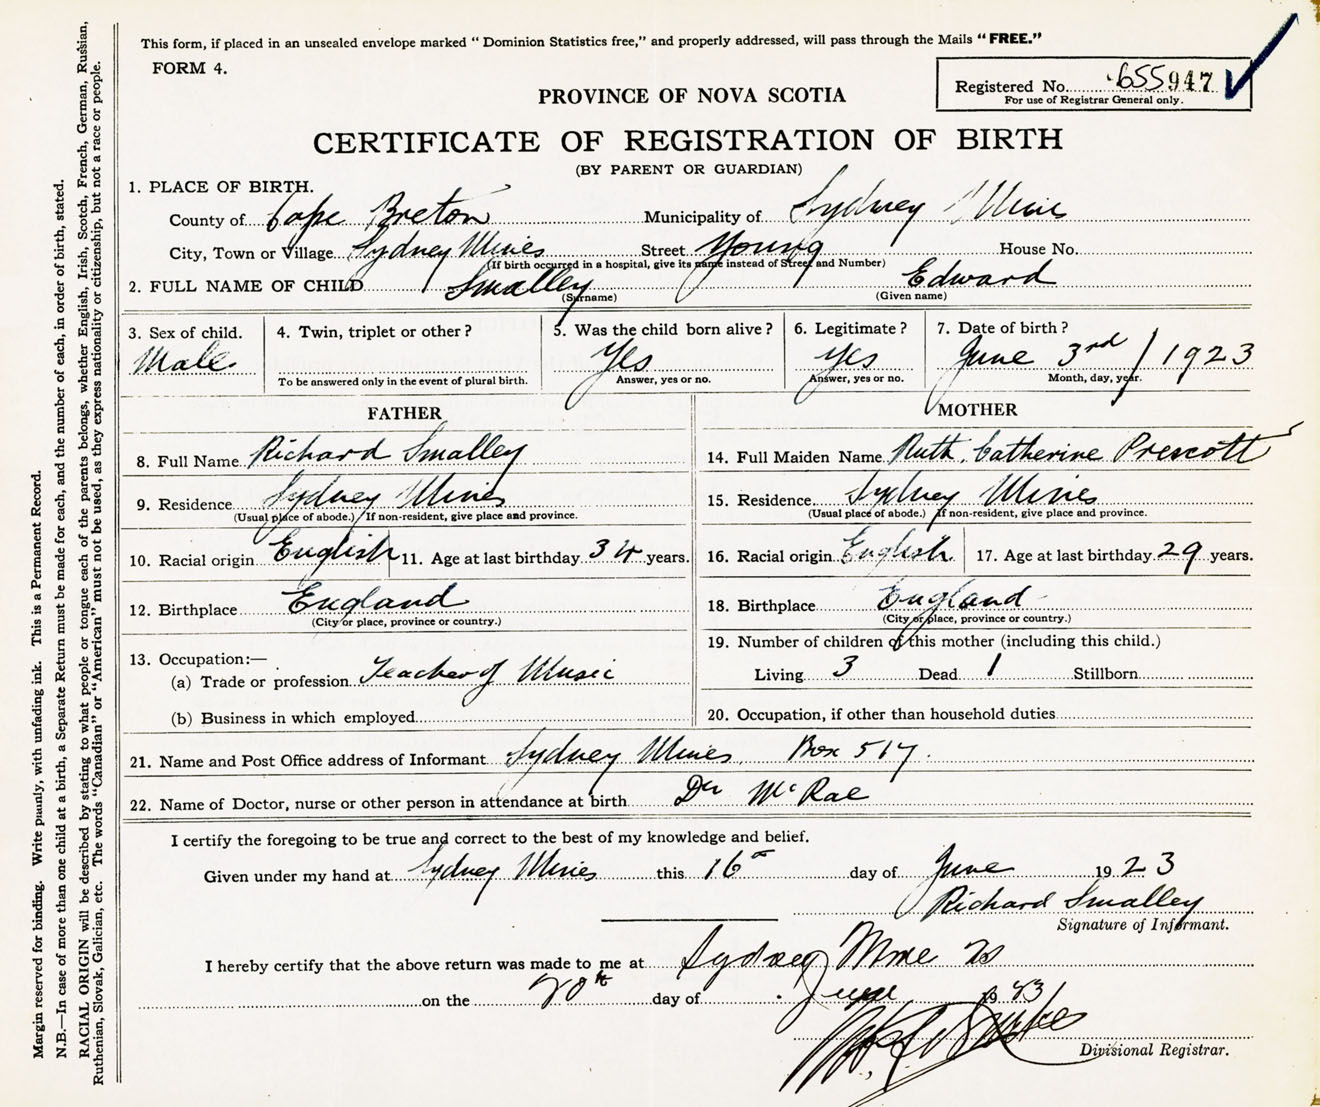 This form, if placed in an unsealed envelope marked " Dominion Statistics free," and properly addressed, will pass through the Mails "FREE."
FORM 4.
Registered No. 655947
For use of Registrar General only.
PROVINCE OF NOVA SCOTIA
CERTIFICATE OF REGISTRATION OF BIRTH
(BY PARENT OR GUARDIAN)
1. PLACE OF BIRTH.
County of Cape Breton Municipality of Sydney Mines
City, Town or Village Sydney Mines Street Young House No.
(If birth occurred in a hospital, give its name instead of Street and Number)
2. FULL NAME OF CHILD Smalley Edward
(Surname) (Given name)
3. Sex of child. Male
4. Twin, triplet or other ?
To be answered only in the event of plural birth.
5. Was the child born alive ? Yes
Answer, yes or no.
6. Legitimate ? Yes
Answer, yes or no.
7. Date of birth ? June 3rd / 1923
Month, day, year.
FATHER
8. Full Name Richard Smalley
9. Residence Sydney Mines
(Usual place of abode.) If non-resident, give place and province.
10. Racial origin English 11. Age at last birthday 34 years.
12. Birthplace England
(City or place, province or country.)
13. Occupation:—
(a) Trade or profession Teacher of Music
(b) Business in which employed
MOTHER
14. Full Maiden Name Ruth Catherine Prescott
15. Residence Sydney Mines
(Usual place of abode.) If non-resident, give place and province.
16. Racial origin English 17. Age at last birthday 29 years.
18. Birthplace England
(City or place, province or country.)
19. Number of children of this mother (including this child.)
Living 3 Dead 1 Stillborn
20. Occupation, if other than household duties
21. Name and Post Office address of Informant Sydney Mines, Box 517.
22. Name of Doctor, nurse or other person in attendance at birth Dr McRae
I certify the foregoing to be true and correct to the best of my knowledge and belief.
Given under my hand at Sydney Mines this 16 day of June 1923
Richard Smalley
Signature of Informant.
I hereby certify that the above return was made to me at Sydney Mines
on the 20th day of June 1923
Divisional Registrar.
Margin reserved for binding. Write plainly, with unfading ink. This is a Permanent Record.
N.B.—In case of more than one child at a birth, a Separate Return must be made for each, and the number of each, in order of birth, stated.
RACIAL ORIGIN will be described by stating to what people or tongue each of the parents belongs, whether English, Irish, Scotch, French, German, Russian,
Ruthenian, Slovak, Galician, etc. The words "Canadian" or "American" must not be used, as they express nationality or citizenship, but not a race or people.